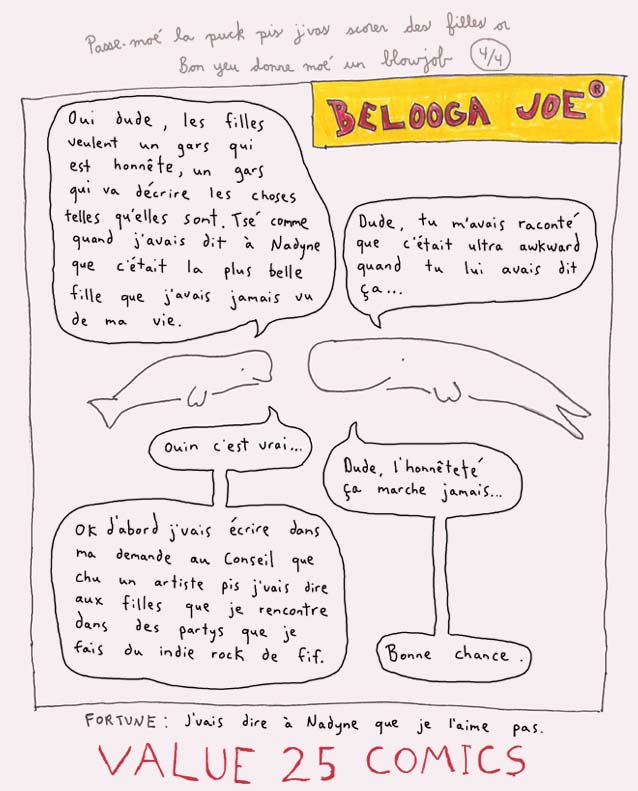 Passe-moé la puck pis j'vas scorer des filles or
Bon yeu donne moé un blowjob 4/4
BELOOGA JOE®
Oui dude, les filles
veulent un gars qui
est honnête, un gars
qui va décrire les choses
telles qu'elles sont. Tsé comme
quand j'avais dit à Nadyne
que c'était la plus belle
fille que j'avais jamais vu
de ma vie.
Dude, tu m'avais raconté
que c'était ultra awkward
quand tu lui avais dit
ça...
Ouin c'est vrai...
Dude, l'honnêteté
ça marche jamais...
OK d'abord j'vais écrire dans
ma demande au Conseil que
chu un artiste pis j'vais dire
aux filles que je rencontre
dans des partys que je
fais du indie rock de fif.
Bonne chance.
FORTUNE: J'vais dire à Nadyne que je l'aime pas.
VALUE 25 COMICS